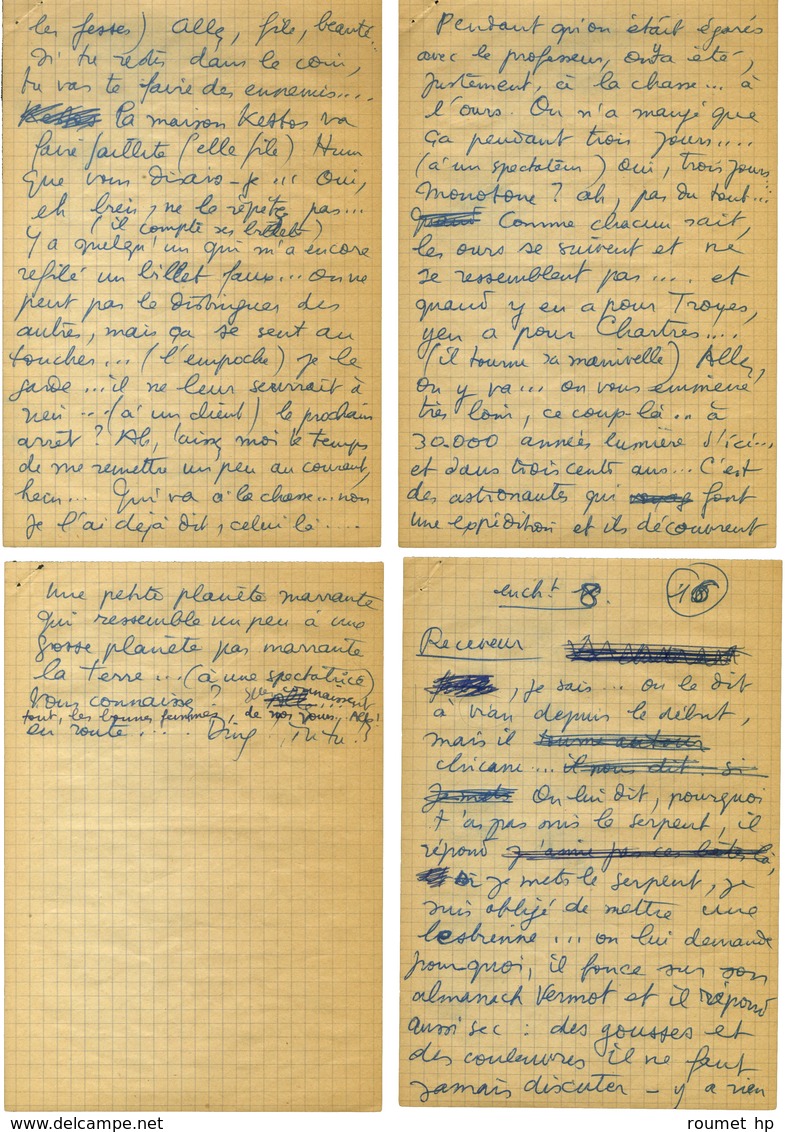 les fesses) Allez, file, beauté..
Si tu restes dans le coin,
tu vas te faire des ennemis....
La maison Kessos va
faire faillite (elle file) Hum
que vous disais-je... Oui,
eh bien, ne le répétez pas...
(il compte ses billets)
Y a quelqu'un qui m'a encore
refilé un billet faux... on ne
peut pas le distinguer des
autres, mais ça se sent au
toucher... (l'empoche) je le
garde... il ne leur servirait à
rien... (à un client) le prochain
arrêt? Ah, laissez moi le temps
de me remettre un peu au courant,
hein... Qui va à la chasse... non
je l'ai déjà dit, celui là.....
Pendant qu'on était égarés
avec le professeur, on a été,
justement, à la chasse... à
l'ours On n'a mangé que
ça pendant trois jours....
(à un spectateur) oui, trois jours
Monotone? ah, pas du tout...
Comme chacun sait,
les ours se suivent et ne
se ressemblent pas.... et
quand y en a pour Troyes,
y en a pour Chartres....
(il tourne sa manivelle) Allez,
on y va... on vous emmène
très loin, ce coup-là.. à
30.000 années lumière d'ici...
et dans trois cents ans... C'est
des astronautes qui font
une expédition et ils découvrent
Une petite planète marrante
qui ressemble un peu à une
grosse planète pas marrante
la terre... (à une spectatrice)
Vous connaissez? connaissent
tout, les bonnes femmes, de nos jours, Allez!
en route.....
encht 8. 16
Receveur
, je sais... on le dit
à Vian depuis le début,
mais il tourne autour
chicane... il nous dit. si
je mets On lui dit, pourquoi
t'as pas mis le serpent, il
répond j'aime pas ces bêtes là,
si je mets le serpent, je
suis obligé de mettre une
lesbienne... on lui demande
pourquoi, il fonce sur son
almanach Vermot et il répond
aussi sec: des gousses et
des couleuvres il ne faut
jamais discuter - y a rien
roumet hp